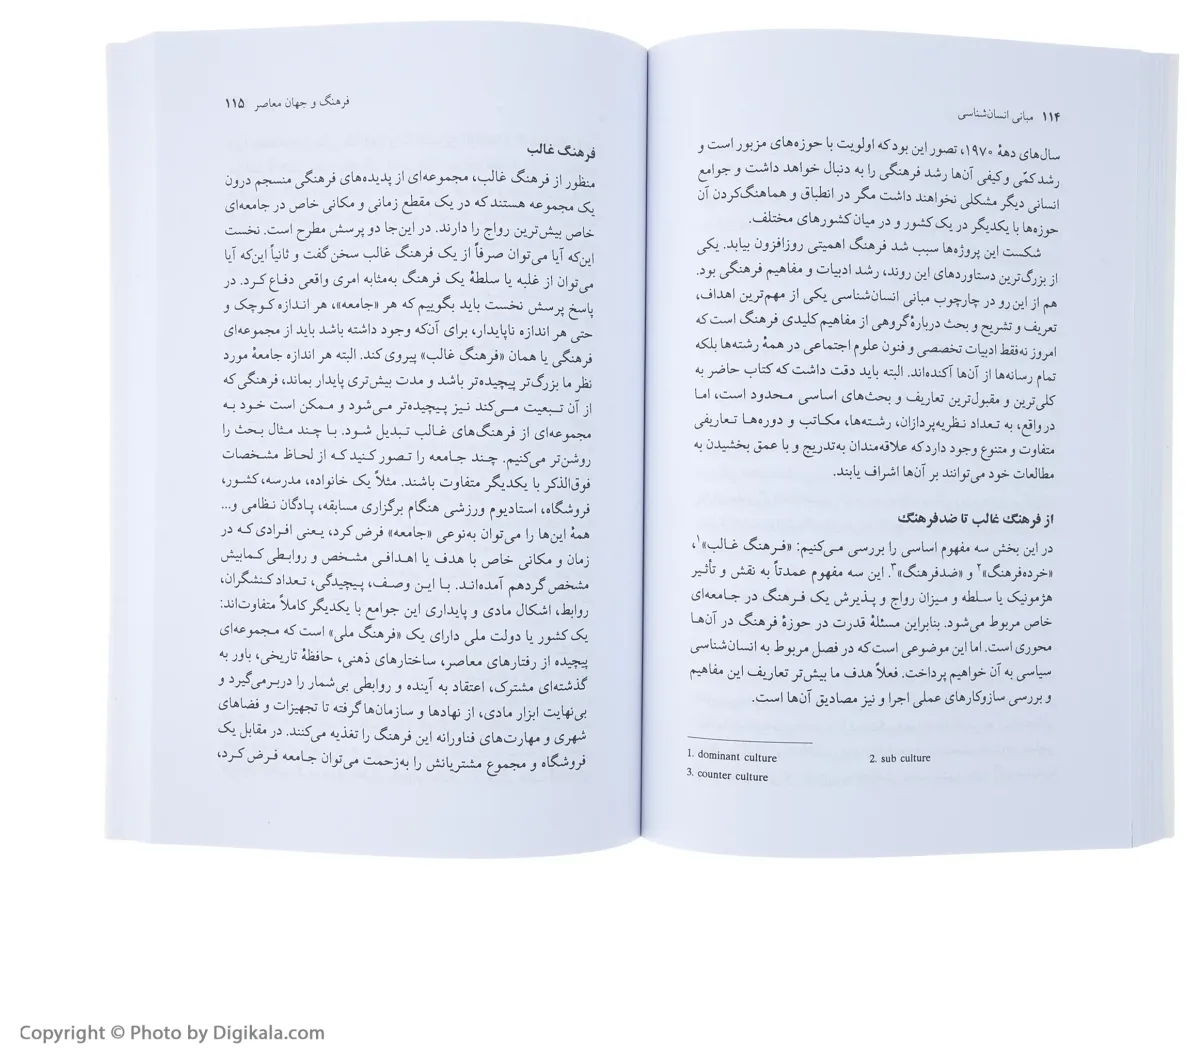 ۱۱۴ مبانی انسان‌شناسی
سال‌های دههٔ ۱۹۷۰، تصور این بود که اولویت با حوزه‌های مزبور است و
رشد کمّی و کیفی آن‌ها رشد فرهنگی را به دنبال خواهد داشت و جوامع
انسانی دیگر مشکلی نخواهند داشت مگر در انطباق و هماهنگ‌کردن آن
حوزه‌ها با یکدیگر در یک کشور و در میان کشورهای مختلف.
شکست این پروژه‌ها سبب شد فرهنگ اهمیتی روزافزون بیابد. یکی
از بزرگ‌ترین دستاوردهای این روند، رشد ادبیات و مفاهیم فرهنگی بود.
هم از این رو در چارچوب مبانی انسان‌شناسی یکی از مهم‌ترین اهداف،
تعریف و تشریح و بحث دربارهٔ گروهی از مفاهیم کلیدی فرهنگ است که
امروز نه‌فقط ادبیات تخصصی و فنون علوم اجتماعی در همهٔ رشته‌ها بلکه
تمام رسانه‌ها از آن‌ها آکنده‌اند. البته باید دقت داشت که کتاب حاضر به
کلی‌ترین و مقبول‌ترین تعاریف و بحث‌های اساسی محدود است، اما
درواقع، به تعداد نظریه‌پردازان، رشته‌ها، مکاتب و دوره‌ها تعاریفی
متفاوت و متنوع وجود دارد که علاقه‌مندان به‌تدریج و با عمق بخشیدن به
مطالعات خود می‌توانند بر آن‌ها اشراف یابند.
از فرهنگ غالب تا ضدفرهنگ
در این بخش سه مفهوم اساسی را بررسی می‌کنیم: «فرهنگ غالب»۱،
«خرده‌فرهنگ»۲ و «ضدفرهنگ»۳. این سه مفهوم عمدتاً به نقش و تأثیر
هژمونیک یا سلطه و میزان رواج و پذیرش یک فرهنگ در جامعه‌ای
خاص مربوط می‌شود. بنابراین مسئلهٔ قدرت در حوزهٔ فرهنگ در آن‌ها
محوری است. اما این موضوعی است که در فصل مربوط به انسان‌شناسی
سیاسی به آن خواهیم پرداخت. فعلاً هدف ما بیش‌تر تعاریف این مفاهیم
و بررسی سازوکارهای عملی اجرا و نیز مصادیق آن‌ها است.
1. dominant culture 2. sub culture
3. counter culture
فرهنگ و جهان معاصر ۱۱۵
فرهنگ غالب
منظور از فرهنگ غالب، مجموعه‌ای از پدیده‌های فرهنگی منسجم درون
یک مجموعه هستند که در یک مقطع زمانی و مکانی خاص در جامعه‌ای
خاص بیش‌ترین رواج را دارند. در این‌جا دو پرسش مطرح است. نخست
این‌که آیا می‌توان صرفاً از یک فرهنگ غالب سخن گفت و ثانیاً این‌که آیا
می‌توان از غلبه یا سلطهٔ یک فرهنگ به‌مثابه امری واقعی دفاع کرد. در
پاسخ پرسش نخست باید بگوییم که هر «جامعه»، هر اندازه کوچک و
حتی هر اندازه ناپایدار، برای آن‌که وجود داشته باشد باید از مجموعه‌ای
فرهنگی یا همان «فرهنگ غالب» پیروی کند. البته هر اندازه جامعهٔ مورد
نظر ما بزرگ‌تر پیچیده‌تر باشد و مدت بیش‌تری پایدار بماند، فرهنگی که
از آن تبعیت می‌کند نیز پیچیده‌تر می‌شود و ممکن است خود به
مجموعه‌ای از فرهنگ‌های غالب تبدیل شود. با چند مثال بحث را
روشن‌تر می‌کنیم. چند جامعه را تصور کنید که از لحاظ مشخصات
فوق‌الذکر با یکدیگر متفاوت باشند. مثلاً یک خانواده، مدرسه، کشور،
فروشگاه، استادیوم ورزشی هنگام برگزاری مسابقه، پادگان نظامی و...
همهٔ این‌ها را می‌توان به‌نوعی «جامعه» فرض کرد، یعنی افرادی که در
زمان و مکانی خاص با هدف یا اهدافی مشخص و روابطی کمابیش
مشخص گردهم آمده‌اند. با این وصف، پیچیدگی، تعداد کنشگران،
روابط، اشکال مادی و پایداری این جوامع با یکدیگر کاملاً متفاوت‌اند:
یک کشور یا دولت ملی دارای یک «فرهنگ ملی» است که مجموعه‌ای
پیچیده از رفتارهای معاصر، ساختارهای ذهنی، حافظهٔ تاریخی، باور به
گذشته‌ای مشترک، اعتقاد به آینده و روابطی بی‌شمار را دربرمی‌گیرد و
بی‌نهایت ابزار مادی، از نهادها و سازمان‌ها گرفته تا تجهیزات و فضاهای
شهری و مهارت‌های فناورانه این فرهنگ را تغذیه می‌کنند. در مقابل یک
فروشگاه و مجموع مشتریانش را به‌زحمت می‌توان جامعه فرض کرد،
Copyright © Photo by Digikala.com